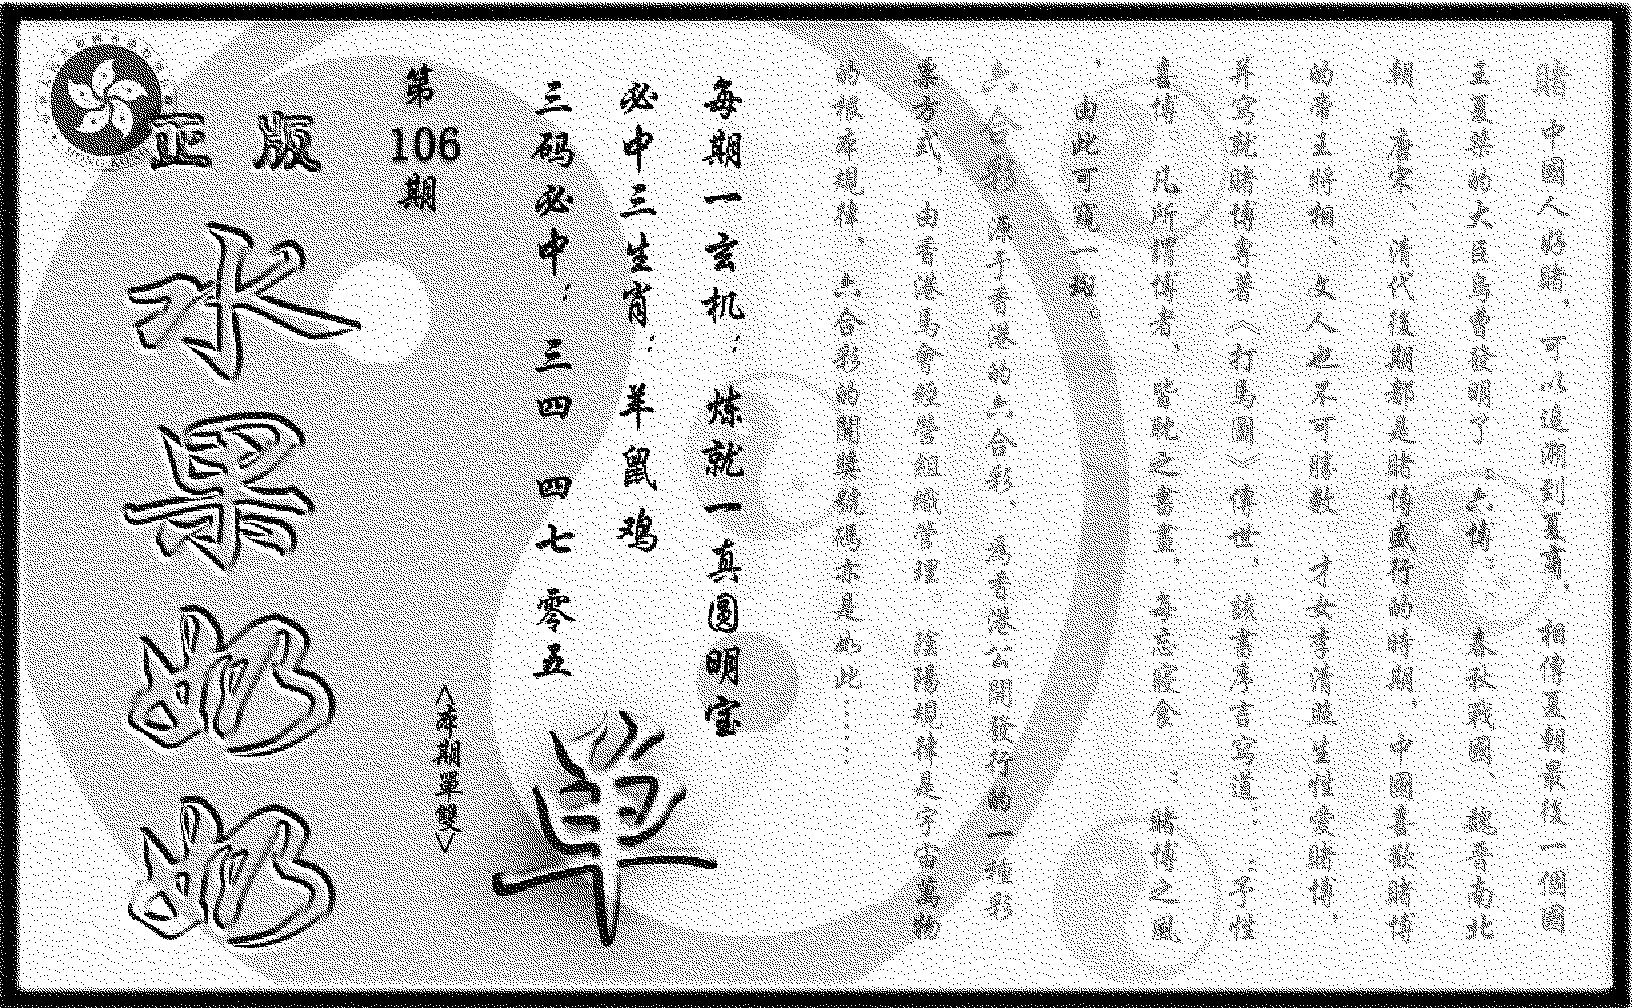 賭 中國人好賭，可以追溯到夏商，相傳夏朝最後一個國
王夏桀的大臣烏曹發明了"六博"。春秋戰國、魏晉南北
朝 唐宋、清代後期都是賭博盛行的時期，中國喜歡賭博
的帝王將相 文人也不可勝數 才女李清照生性愛賭博，
并寫就賭博專著〈打馬圖〉傳世，該書序言寫道：予性
喜博 凡所謂博者，皆耽之，每忘寢食：賭博之風
，由此可窺一斑。
六合彩 源于香港的六合彩，為香港公開發行的一種彩
票方式，由香港馬會經營組織管理 陰陽規律是宇宙萬物
的根本規律，六合彩的開獎號碼亦是如此……
每期一玄机：炼就一真圆明宝
必中三生肖：羊鼠鸡
三码必中：三四 四七 零五
单
第106期
〈本期單雙〉
正版
水果奶奶